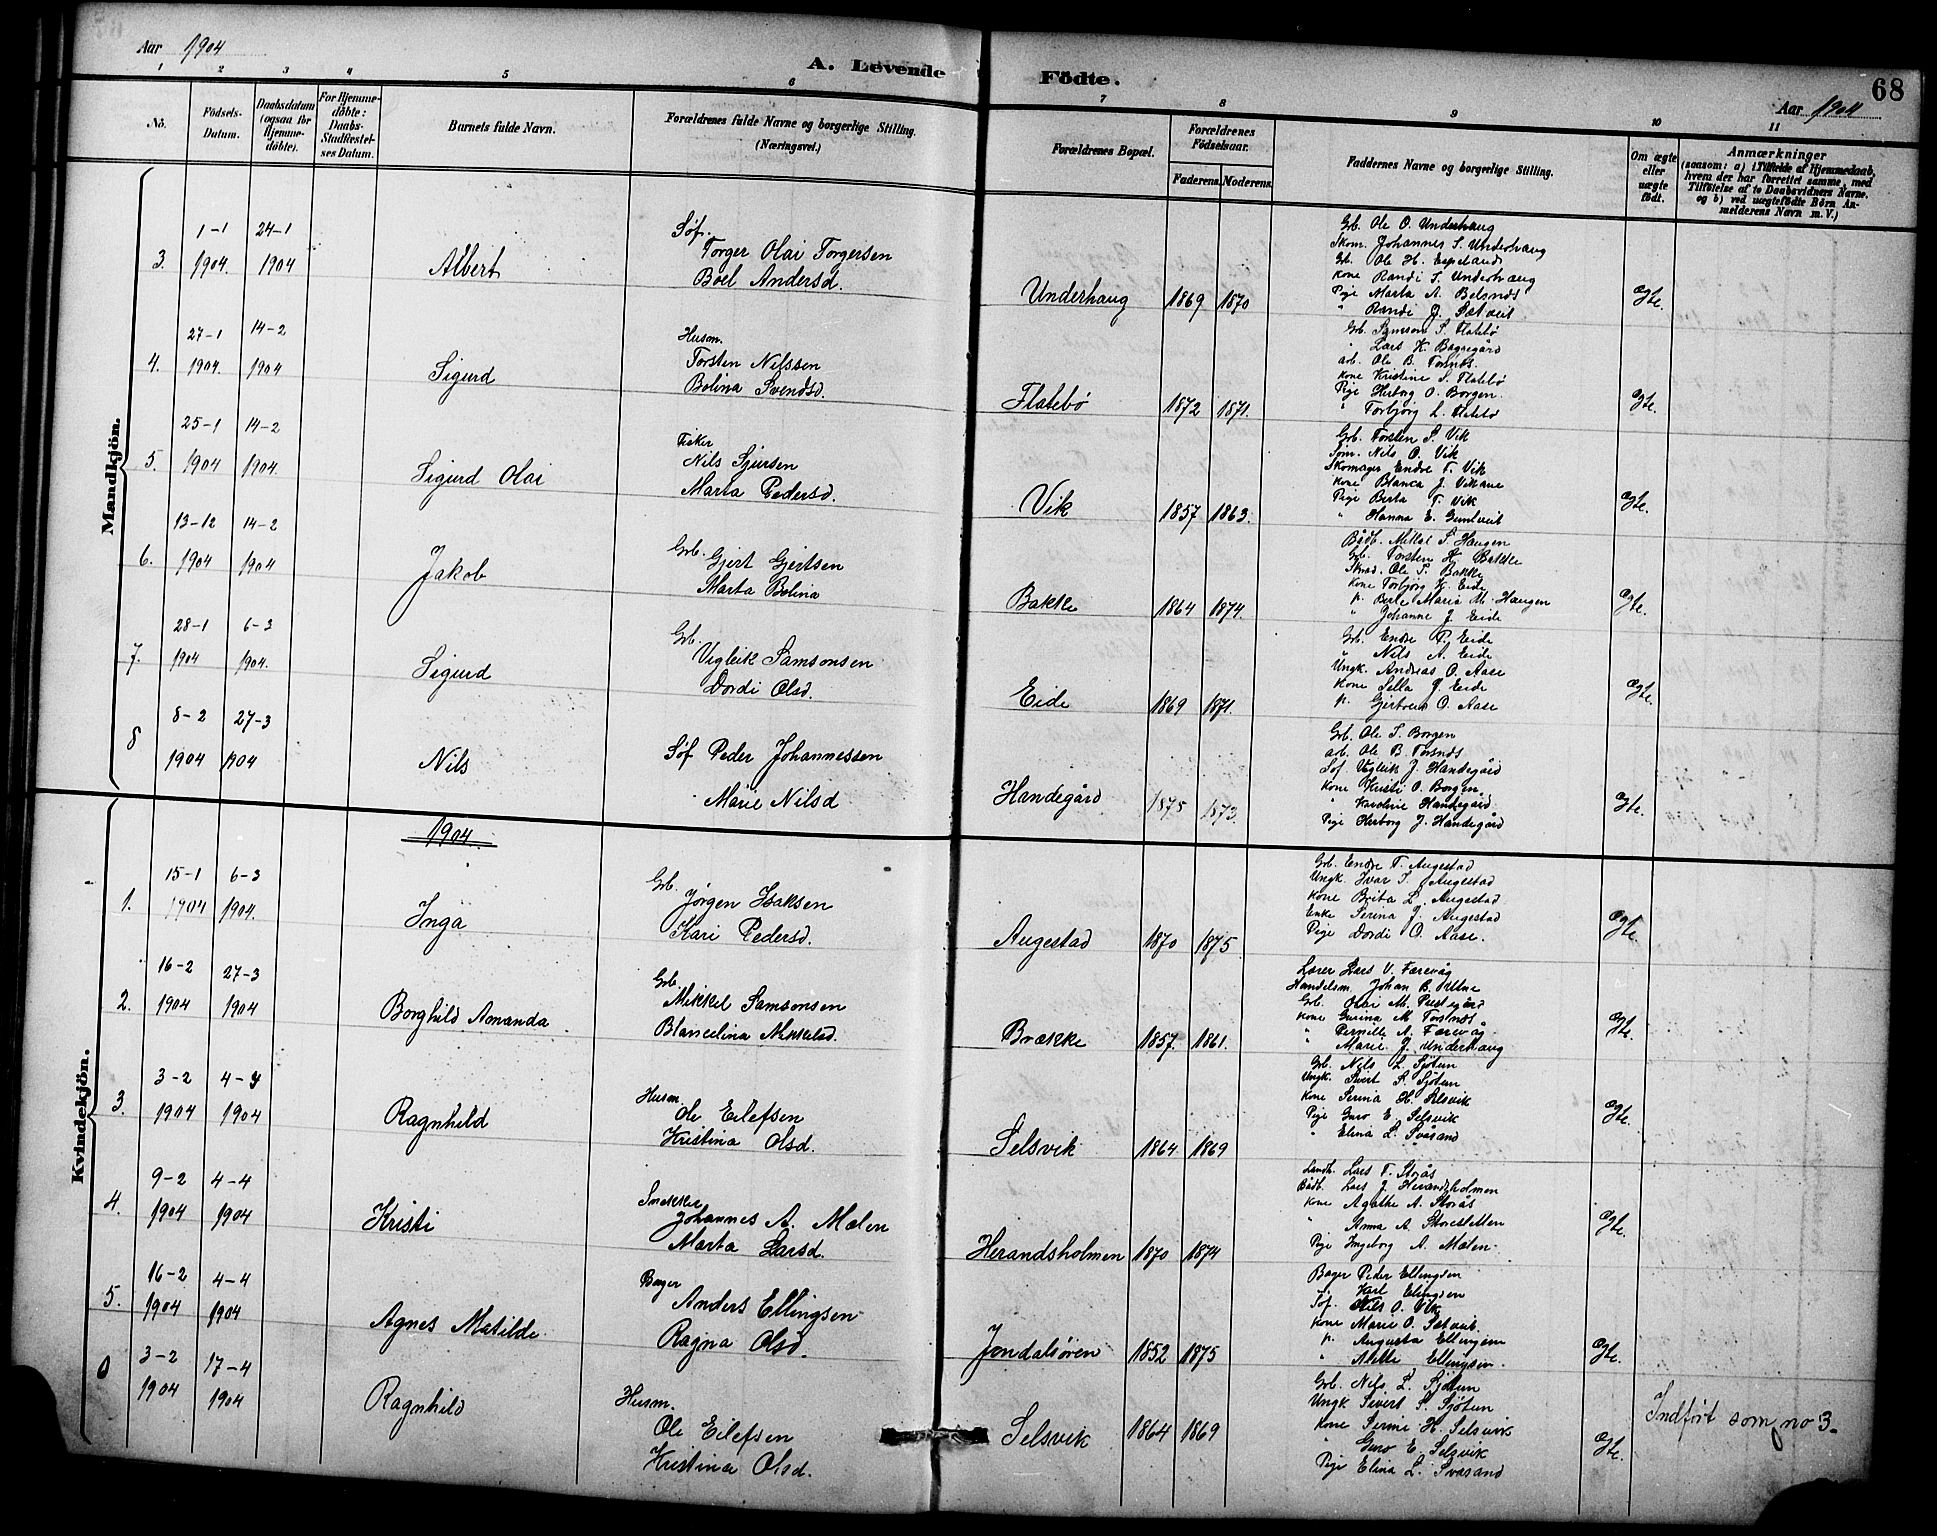 Aar 1904
A. Levende Födte.
68
Aar 1904
1 2 3 4 5 6 7 8 9 10 11
No.
Födsels-Datum.
Daabsdatum (ogsaa for Hjemme-döbte).
For Hjemme-döbte: Daabs-Stadfæstel-ses Datum.
Barnets fulde Navn.
Forældrenes fulde Navne og borgerlige Stilling. (Næringsvei.)
Forældrenes Bopæl.
Forældrenes Födselsaar.
Faderens. Moderens.
Faddernes Navne og borgerlige Stilling.
Om ægte eller uægte födt.
Anmærkninger
(saasom: a) i Tilfælde af Hjemmedaab, hvem der har forrettet samme, med Tilföielse af to Daabsvidners Navne, og b) ved uægtefödte Börn An-melderens Navn m. V.)
Mandkjön.
3. 1-1 1904. 24-1 1904
Albert
Søf. Torger Olai Torgersen
Boel Andersd.
Underhaug 1869 1870
Grb. Ole O. Underhaug
Skom. Johannes S. Underhaug
Gb. Ole H. Espeland
Kone Randi S. Underhaug
Pige Marta A. Belsnæs
" Randi J. Sætveit
Ægte.
4. 27-1 1904. 14-2 1904
Sigurd
Husm. Torsten Nilssen
Bolina Svendsd.
Flatebø 1872 1871.
Grb. Samson S. Flatebø
" Lars K. Bognegård
arb. Ole B. Torsnæs.
Kone Kristine S. Flatebø
Pige Herborg O. Borgen.
" Torbjörg L. Flatebø
Ægte.
5. 25-1 1904 14-2 1904.
Sigurd Olai
Fisker Nils Sjursen
Marta Pedersd.
Vik 1857 1863.
Grb. Torsten S. Vik
Søm. Nils O. Vik
Skomager Endre T. Vik
Kone Blanca J. Vikane
Pige Berta T. Vik
" Hanna E. Guntveit
Ægte.
6. 13-12 1904 14-2 1904
Jakob
Grb. Gjert Gjertsen
Marta Bolina
Bakke 1864 1874.
Bådb. Mikkel S. Haugen
Gb. Torsten H. Bakke
Skræd. Ole T. Bakke
Kone Torbjörg K. Eide
p. Berte Maria M. Haugen
" Johanne J. Eide
Ægte.
7. 28-1 1904 6-3 1904.
Sigurd
Grb. Vigleik Samsonsen
Dordi Olsd.
Eide 1869 1871.
Grb. Endre T. Eide
" Nils A. Eide
Ungk. Andreas O. Aase
Kone Sella J. Eide
p. Gjertrud O. Aase
Ægte.
8 8-2 1904 27-3 1904
Nils
Søf Peder Johannessen
Marie Nilsd
Handegård 1875 1873.
Grb. Ole S. Borgen
arb. Ole B. Torsnæs
Søf. Vigleik J. Handegård
Kone Kristi O. Borgen
" Karoline Handegård
Pige Herborg J. Handegård
Ægte.
Kvindekjön.
1904.
1. 15-1 1904 6-3 1904.
Inga
Grb. Jørgen Isaksen
Kari Pedersd.
Augestad 1870 1875.
Grb. Endre T. Augestad
Ungk. Ivar S. Augestad
Kone Brita L. Augestad
Enke Serina J. Augestad
Pige Dordi O. Aase.
Ægte.
2. 16-2 1904 27-3 1904
Borghild Amanda
Grb. Mikkel Samsonsen
Blancelina Mikkelsd.
Brække 1857. 1861.
Lærer Lars V. Færevåg
Handelsm. Johan B.
Grb. Olai M. Prestegård
Kone Gurina M. Torsnæs
" Pernille A. Færevåg
" Marie J. Underhaug
Ægte.
3. 3-2 1904 4-4 1904
Ragnhild
Husm. Ole Eilefsen
Kristina Olsd.
Selsvik 1864 1869
Grb. Nils L. Sjötun
Ungk. Sivert S. Sjötun
Kone Serina H. Selsvik
Pige Guro E. Selsvik
" Elina L. Svåsand
Ægte.
4. 9-2 1904 4-4 1904
Kristi
Snekker Johannes A. Mælen
Marta Larsd.
Herandsholmen 1870 1874
Landh. Lars T. Storås
Bådb. Lars J. Herandsholmen
Kone Agathe A. Storås
" Anna A. Storesletten
Pige Ingeborg A. Mælen
Ægte.
5. 16-2 1904 4-4 1904
Agnes Matilde
Bager Anders Ellingsen
Ragna Olsd.
Jondalsören 1852 1875
Bager Peder Ellingsen
" Karl Ellingsen
Søf. Nils O. Vik
Kone Marie O. Sætveit.
p. Augusta Ellingsen
" Alette Ellingsen.
Ægte.
0 3-2 1904 17-4 1904
Ragnhild
Husm. Ole Eilefsen
Kristina Olsd.
Selsvik 1864 1869
Grb. Nils L. Sjötun
Ungk Sivert S. Sjötun
Kone Serine H. Selsvik
" Guro E. Selsvik
Pige Elina L. Svåsand
Ægte.
Indført som no 3.